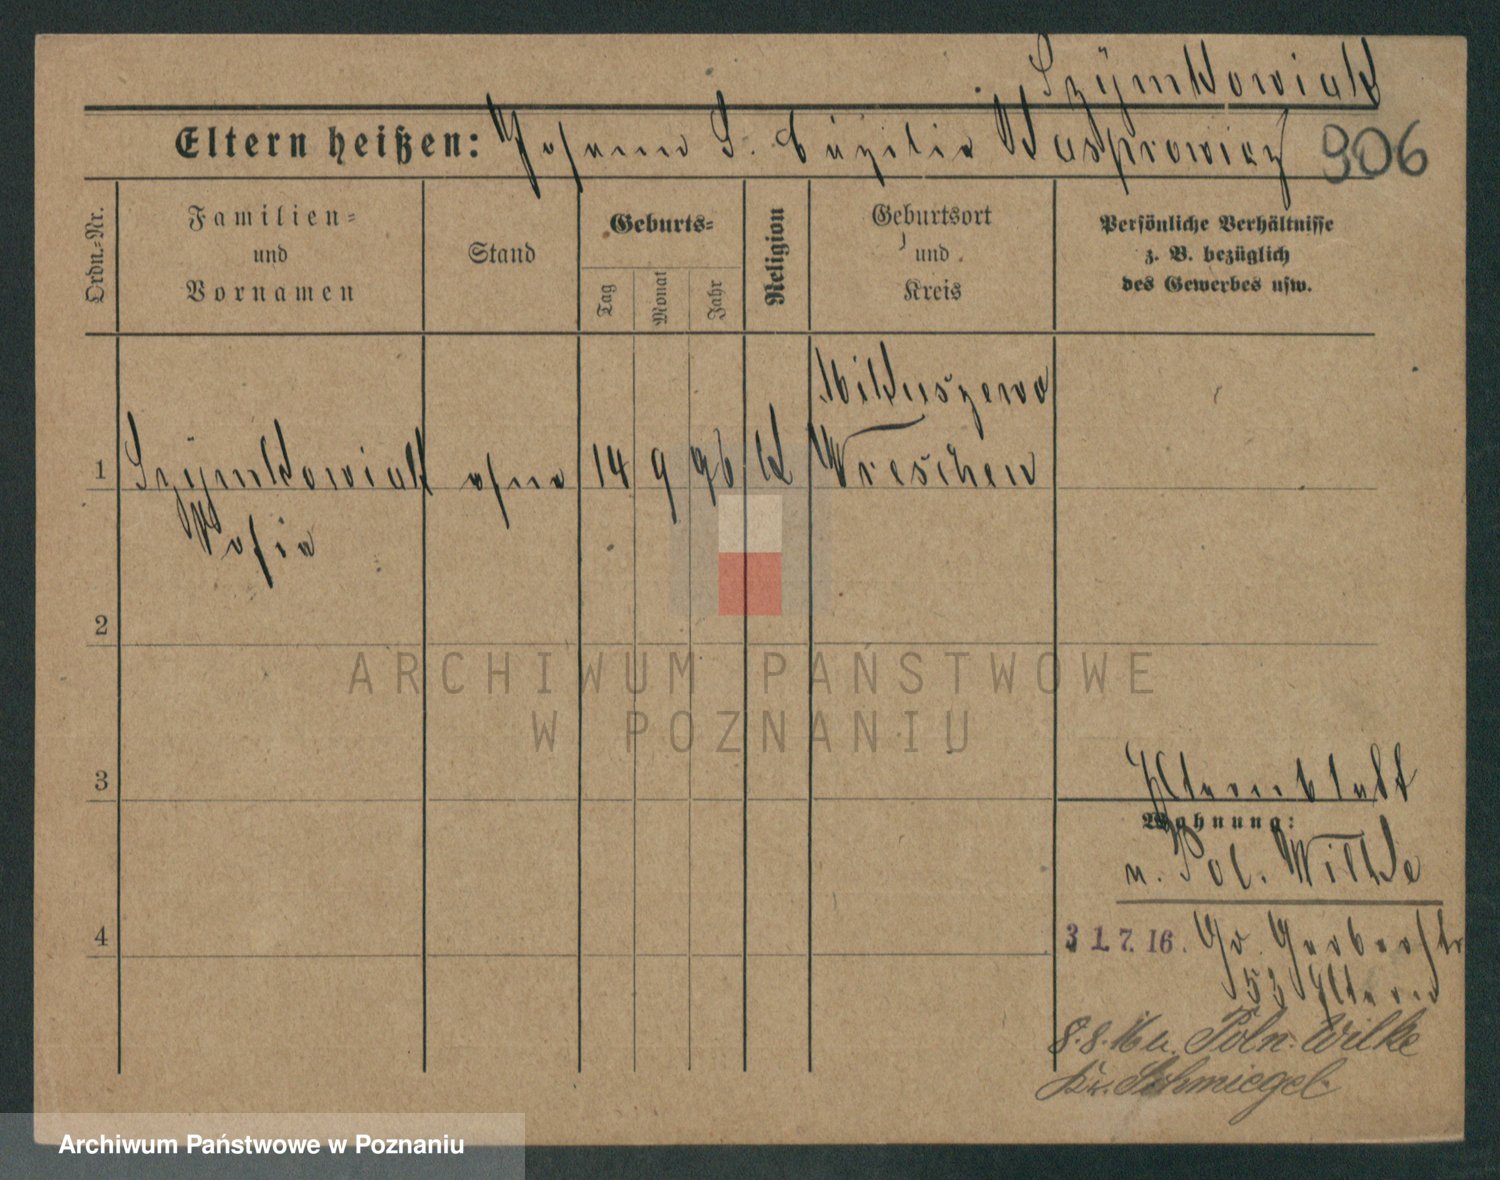 Szÿmkowiak
Eltern heißen: Johann S. Cäzilie Kasprowicz 906
Ordn.=Nr.
Familien=
und
Vornamen
Stand
Geburts=
Tag
Monat
Jahr
Religion
Geburtsort
und
Kreis
Persönliche Verhältnisse
z. B. bezüglich
des Gewerbes usw.
Mikuszewo
1 Szÿmkowiak ohne 14 9 96 k Wreschen
Sofie
2
3
Elternblatt
Wohnung:
n. Pol. Wilke
4
31.7.16. Gr. Gerberstr
53 Eltern
8.8.16 n. Poln. Wilke
Kr. Schmiegel
ARCHIWUM PAŃSTWOWE
W POZNANIU
Archiwum Państwowe w Poznaniu